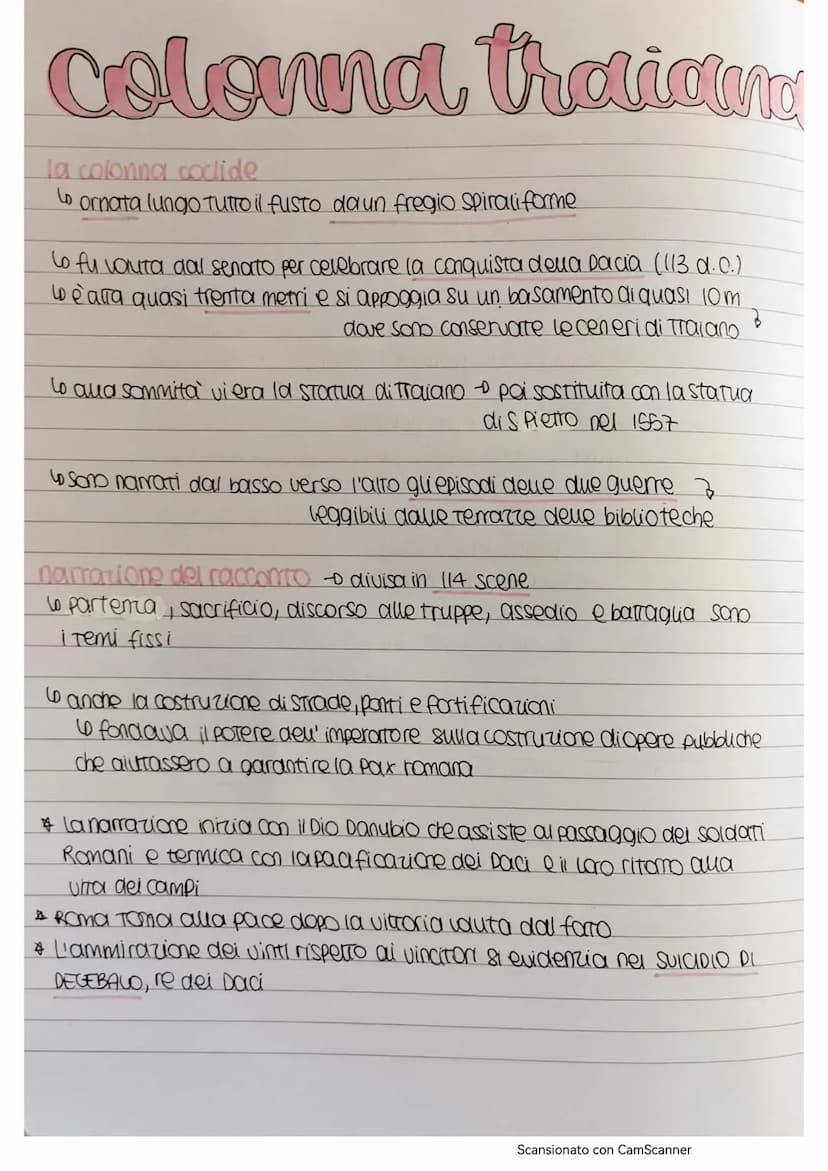 colonna traiana
la colonna coclide
↳ ornata lungo tutto il fusto da un fregio spiraliforme
↳ fu voluta dal senato per celebrare la conquista della Dacia (113 d.C.)
↳ è alta quasi trenta metri e si appoggia su un basamento di quasi 10 m
dove sono conservate le ceneri di Traiano
↳ alla sommità vi era la statua di Traiano → poi sostituita con la statua
di S Pietro nel 1557
↳ sono narrati dal basso verso l'alto gli episodi delle due guerre
leggibili dalle terrazze delle biblioteche
narrazione del racconto → divisa in 114 scene
↳ partenza, sacrificio, discorso alle truppe, assedio e battaglia sono
i temi fissi
↳ anche la costruzione di strade, ponti e fortificazioni
↳ fondava il potere dell'imperatore sulla costruzione di opere pubbliche
che aiutassero a garantire la Pax romana
* la narrazione inizia con il Dio Danubio che assiste al passaggio dei soldati
Romani e termica con la pacificazione dei Daci e il loro ritorno alla
vita dei campi
* Roma torna alla pace dopo la vittoria voluta dal fato
* L'ammirazione dei vinti rispetto ai vincitori si evidenzia nel SUICIDIO DI
DECEBALO, re dei Daci
Scansionato con CamScanner